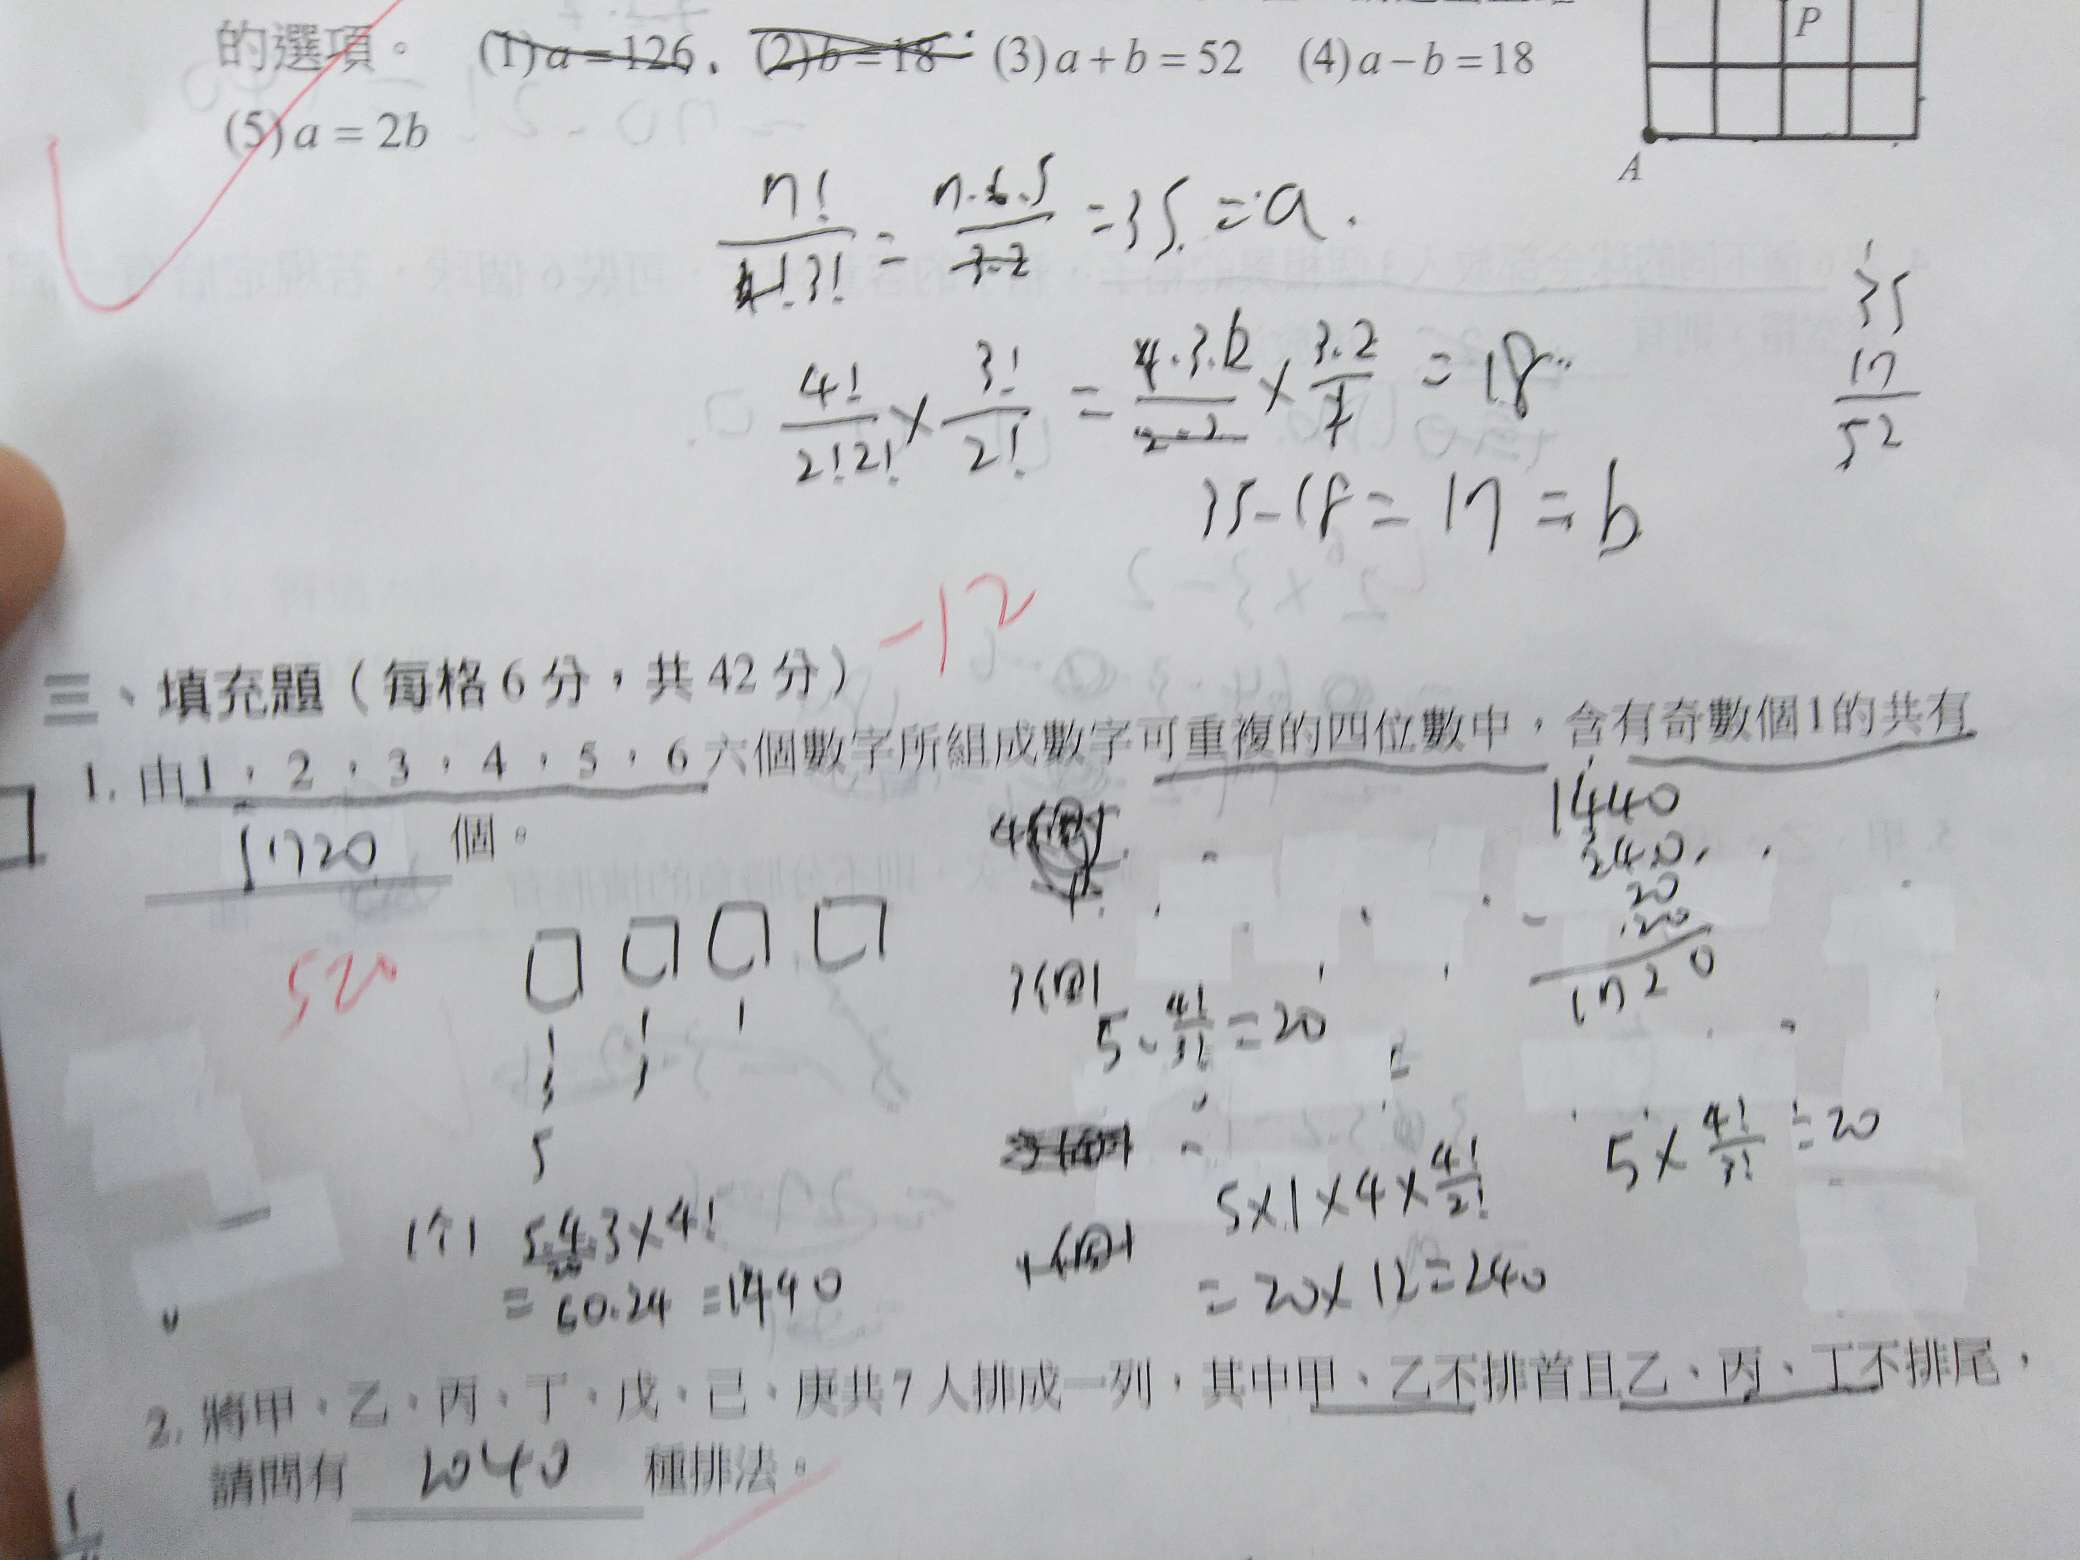 的選項。 (1) a = 126 (2) b = 18 (3) a + b = 52 (4) a − b = 18
P
(5) a = 2b
A
7!/4!3! = 7·6·5/3·2 = 35 = a
35
17
52
4!/2!2! × 3!/2! = 4·3·2/2·2 × 3·2/2 = 18
35-18 = 17 = b
-12
三、填充題（每格 6 分，共 42 分）
1. 由1，2，3，4，5，6六個數字所組成數字可重複的四位數中，含有奇數個1的共有
1720 個。
520
1440
240
20
20
1720
3個1
5·4!/3! = 20
1 1 1
3 3
5
5×1×4×4!/2!
= 20×12=240
5×4!/3! = 20
1个1 5·4·3×4!
20
= 60·24 = 1440
1個1
2. 將甲、乙、丙、丁、戊、己、庚共7人排成一列，其中甲、乙不排首且乙、丙、丁不排尾，
請問有 2040 種排法。